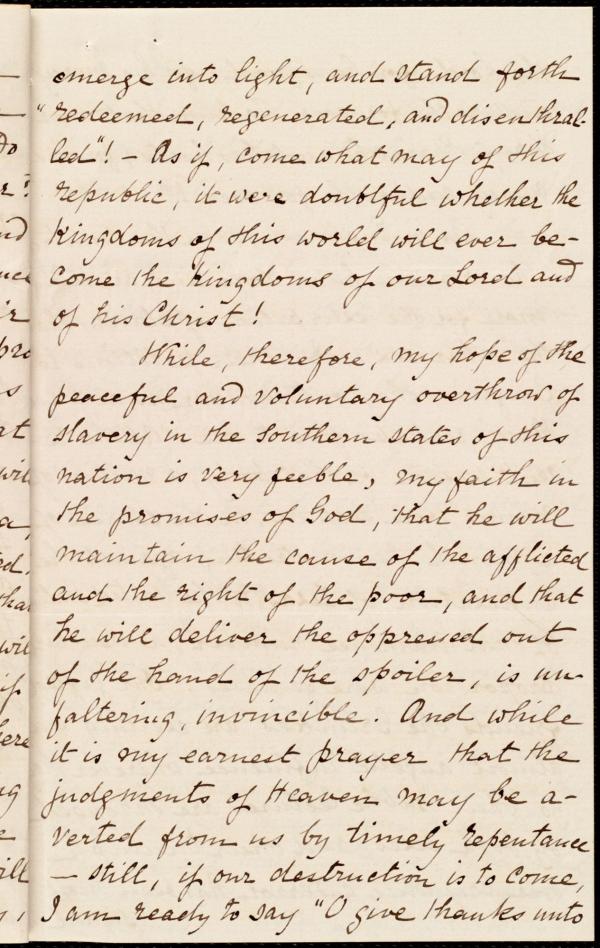 emerge into light, and stand forth
"redeemed, regenerated, and disenthral-
led"! – As if, come what may of this
republic, it were doubtful whether the
kingdoms of this world will ever be-
come the kingdoms of our Lord and
of his Christ!
While, therefore, my hope of the
peaceful and voluntary overthrow of
slavery in the Southern states of this
nation is very feeble, my faith in
the promises of God, that he will
maintain the cause of the afflicted
and the right of the poor, and that
he will deliver the oppressed out
of the hand of the spoiler, is un-
faltering, invincible. And while
it is my earnest prayer that the
judgments of Heaven may be a-
verted from us by timely repentance
— still, if our destruction is to come,
I am ready to say "O give thanks unto